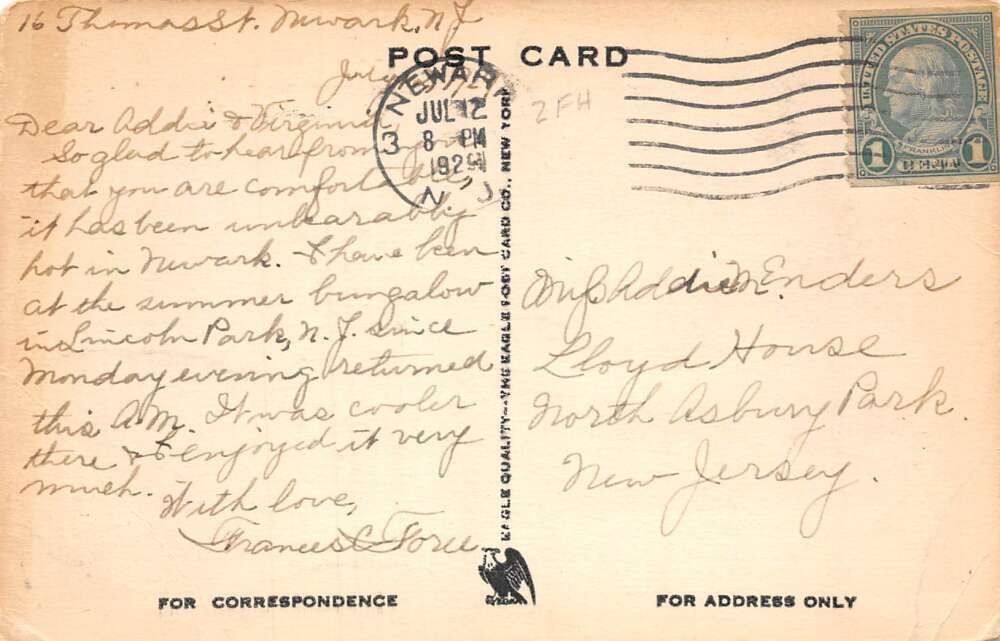 16 Thomas St. Newark, N J
POST CARD
July
Dear Addie & Virginia
So glad to hear from you
that you are comfortable,
it has been unbearably
hot in Newark. I have been
at the summer bungalow
in Lincoln Park, N. J. since
Monday evening returned
this A.M. It was cooler
there & I enjoyed it very
much.
With love,
Frances C Force
FOR CORRESPONDENCE
NEWARK
3
JUL 12
8 PM
192
N. J.
2 FH
EAGLE QUALITY—THE EAGLE POST CARD CO., NEW YORK
UNITED STATES POSTAGE
FRANKLIN
1 CENT 1
Miss Addie M. Enders
Lloyd House
North Asbury Park.
New Jersey.
FOR ADDRESS ONLY